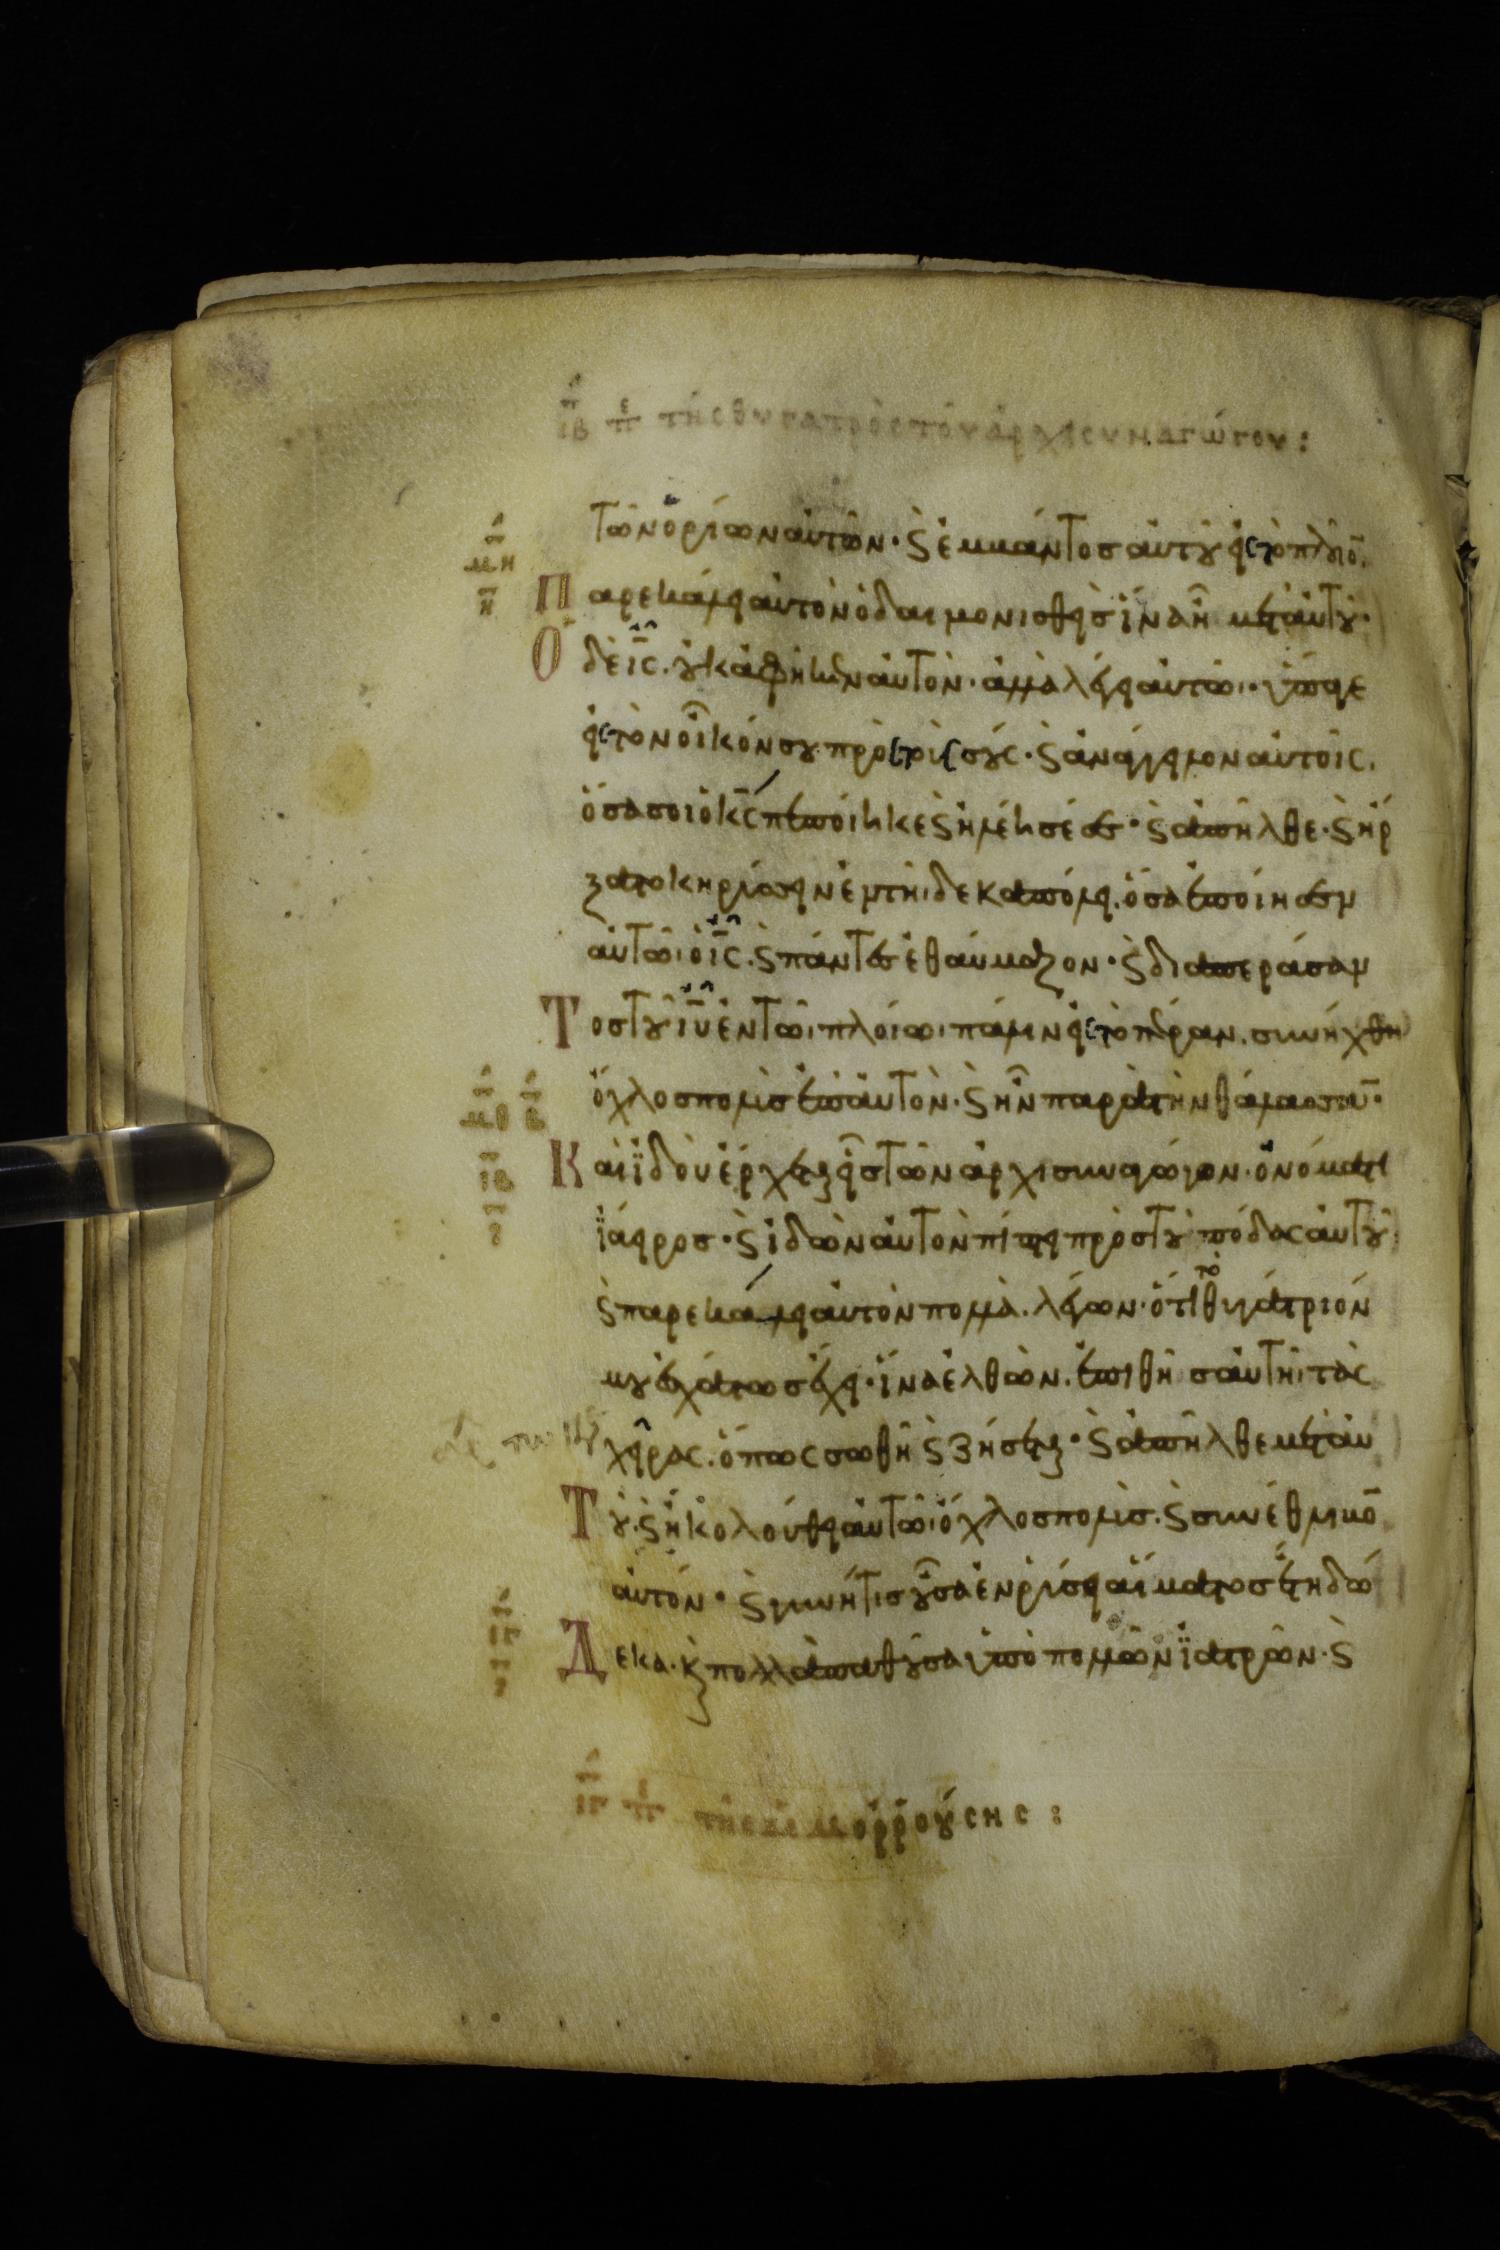 ιβ π ε τῆς θυγατρὸς τοῦ ἀρχισυναγώγου :
τῶν ὁρίων αὐτῶν · ϗ ἐμβάντος αὐτοῦ εἰς τὸ πλοῖο̄.
μη η Παρεκάλει αὐτὸν ὁ δαιμονισθεὶς ἵνα ἦ μετ' αὐτοῦ ·
Ὁ δὲ ι̅ς̅. οὐκ ἀφῆκεν αὐτὸν · ἀλλὰ λέγει αὐτῶι · ὕπαγε
εἰς τὸν οἶκόν σου πρὸς τοὺς σούς · ϗ ἀνάγγειλον αὐτοῖς.
ὅσα σοι ὁ κ̅ς̅ πεποίηκε ϗ ἠλέησέ σε · ϗ ἀπῆλθε · ϗ ἤρ
ξατο κηρύσσειν ἐν τῆι δεκαπόλει. ὅσα ἐποίησεν
αὐτῶι ὁ ι̅ς̅. ϗ πάντες ἐθαύμαζον · ϗ διαπεράσαν
Τος τοῦ ι̅υ̅ ἐν τῶι πλοίωι πάλιν εἰς τὸ πέραν. συνήχθη
μθ β ὄχλος πολὺς ἐπ' αὐτὸν · ϗ ἦν παρὰ τὴν θάλασσαν ·
ιβ Καὶ ἰδοὺ ἔρχεται εἷς τῶν ἀρχισυναγώγων · ὀνόματι
ἰάειρος · ϗ ἰδὼν αὐτὸν πίπτει πρὸς τοὺς πόδας αὐτοῦ
ϗ παρεκάλει αὐτὸν πολλὰ · λέγων · ὅτι τὸ θυγάτριόν
μου ἐσχάτως ἔχει · ἵνα ἐλθὼν. ἐπιθῆς αὐτῆι τὰς
χεῖρας. ὅπως σωθῆ ϗ ζήσεται · ϗ ἀπῆλθε μετ' αὐ
Τοῦ · ϗ ἠκολούθει αὐτῶι ὄχλος πολύς. ϗ συνέθλιβο̄
αὐτόν · ϗ γυνή τις οὖσα ἐν ῥύσει αἵματος ἔτη δώ
ιγ Δεκα · ϗ πολλὰ παθοῦσα ὑπὸ πολλῶν ἰατρῶν · ϗ
ιγ π ε τῆς αἱμορροούσης :